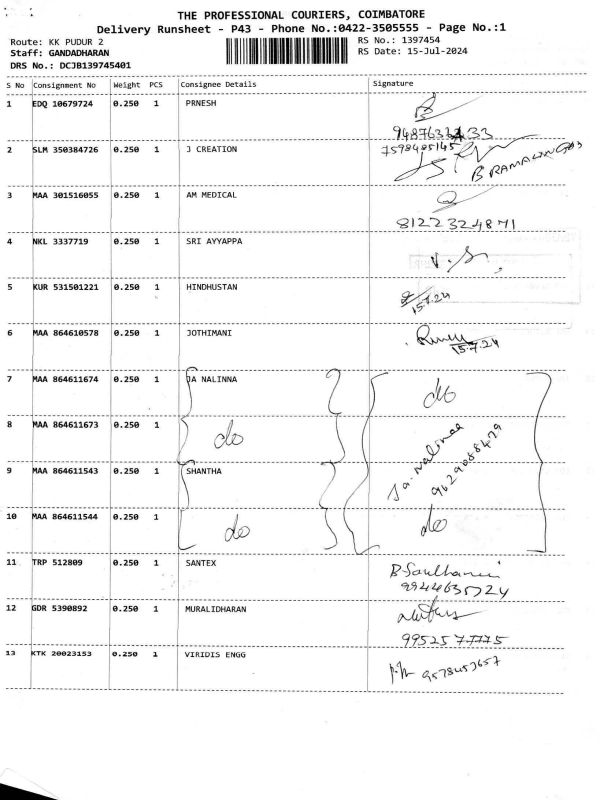 THE PROFESSIONAL COURIERS, COIMBATORE
Delivery Runsheet - P43 - Phone No.:0422-3505555 - Page No.:1
Route: KK PUDUR 2
RS No.: 1397454
Staff: GANDADHARAN
RS Date: 15-Jul-2024
DRS No.: DCJB139745401
S No Consignment No Weight PCS Consignee Details Signature
1 EDQ 10679724 0.250 1 PRNESH
2 SLM 350384726 0.250 1 J CREATION 7598485145
B RAMALINGAM
3 MAA 301516055 0.250 1 AM MEDICAL
8122324871
4 NKL 3337719 0.250 1 SRI AYYAPPA
V.S.
5 KUR 531501221 0.250 1 HINDHUSTAN
15.7.24
6 MAA 864610578 0.250 1 JOTHIMANI
15.7.24
7 MAA 864611674 0.250 1 JA NALINNA do
8 MAA 864611673 0.250 1 do
Ja. Nalinaa
9629088479
9 MAA 864611543 0.250 1 SHANTHA
10 MAA 864611544 0.250 1 do do
11 TRP 512809 0.250 1 SANTEX
12 GDR 5390892 0.250 1 MURALIDHARAN
9952577775
13 KTK 20023153 0.250 1 VIRIDIS ENGG 9578453657